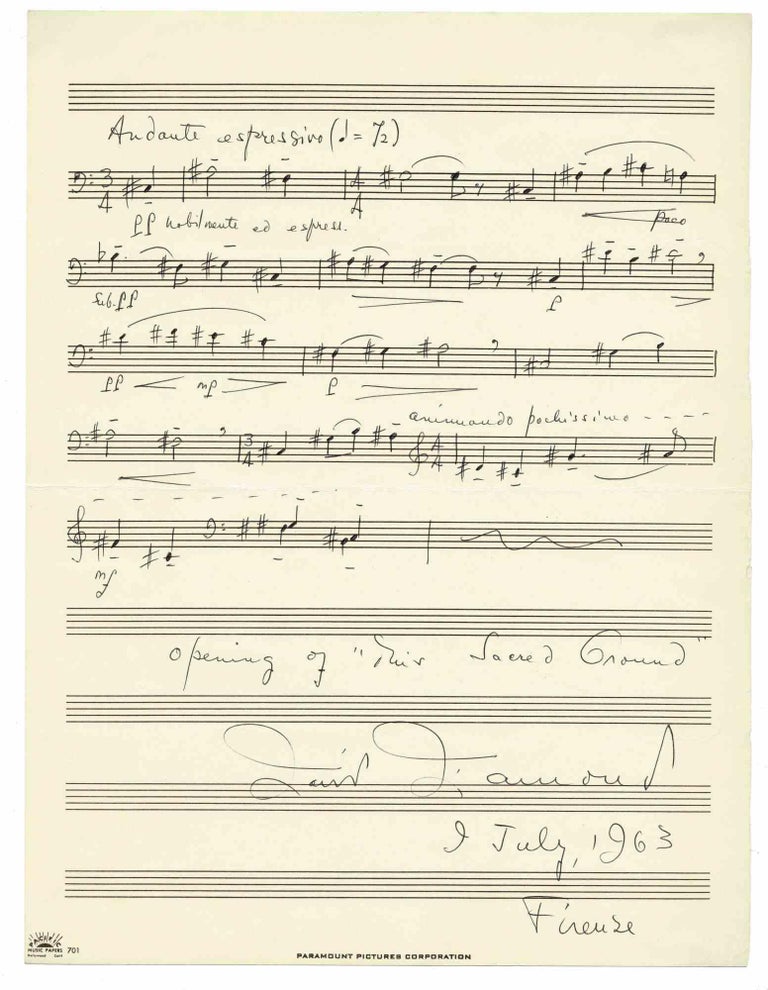 Andante espressivo (♩= 72)
3 4
4 4
pp nobilmente ed espress.
poco
sub. pp
p
pp mp
p
animando pochissimo - - - -
3 4
4 4
mf
opening of "This Sacred Ground"
David Diamond
9 July, 1963
Firenze
MUSIC PAPERS 701
Hollywood Calif
PARAMOUNT PICTURES CORPORATION